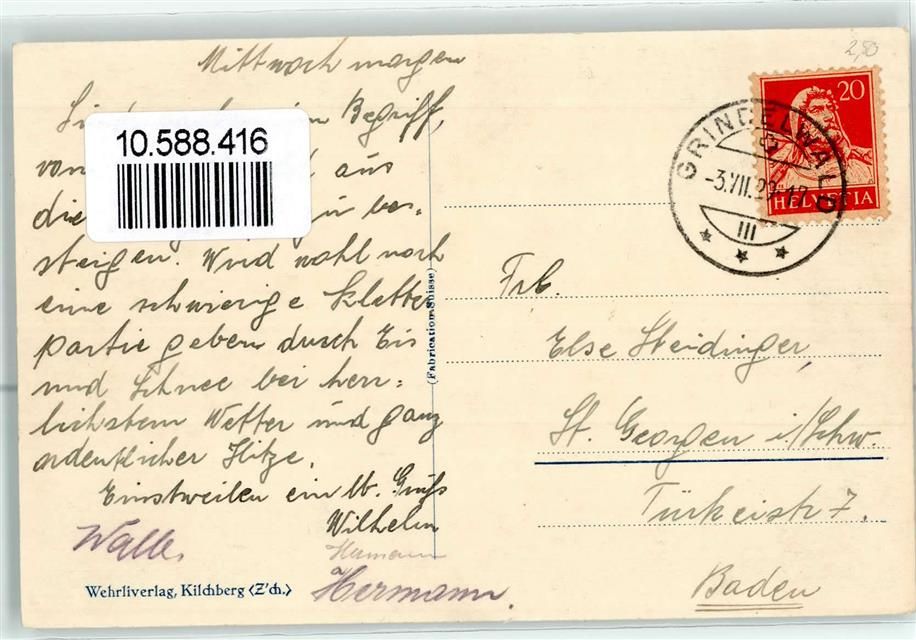 Mittwoch morgen
Begriff,
von aus
die zu be-
steigen. Wird wohl noch
eine schwierige Kletter
partie geben durch Eis
und Schnee bei herr=
lichstem Wetter und ganz
ordentlicher Hitze.
Einstweilen ein lb. Gruß
Wilhelm
Walle.
Hermann
Hermann.
Wehrliverlag, Kilchberg (Z'ch.)
10.588.416
(Fabrication Suisse)
2,50
20
HELVETIA
GRINDELWALD
-3.VII.29-17
III
Frl.
Else Weidinger,
St. Georgen i/Schw.
Türkeistr 7.
Baden